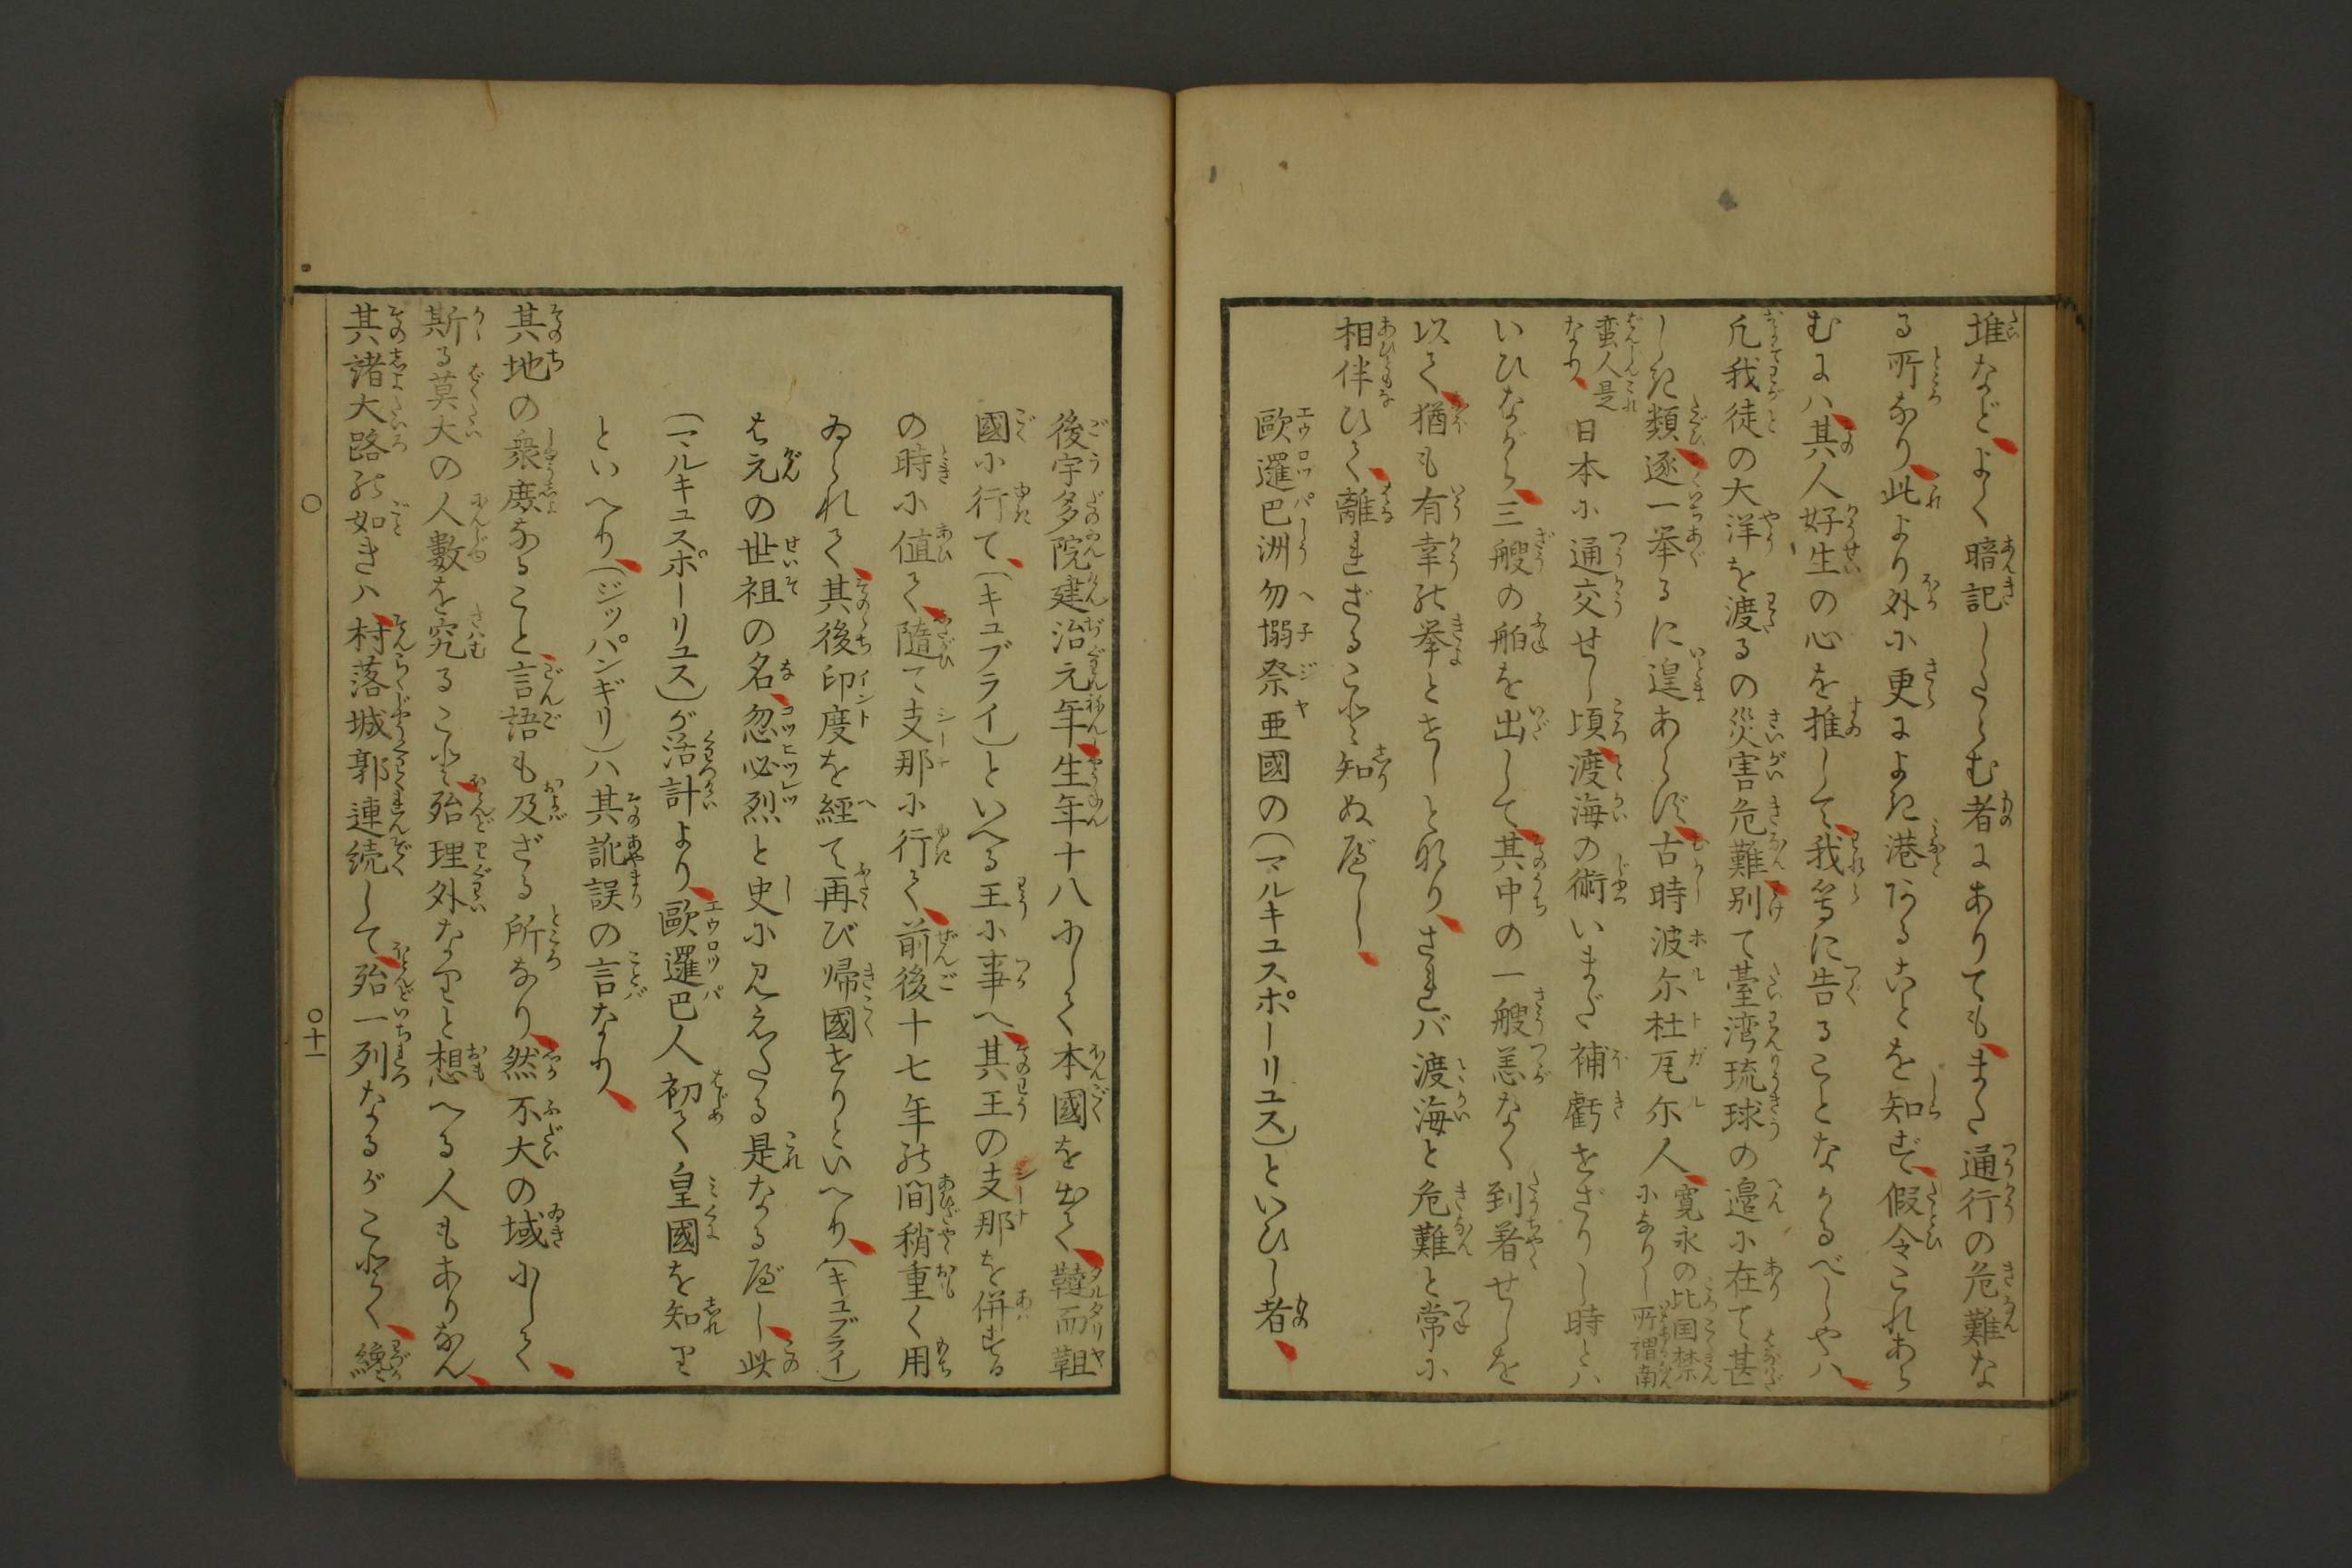 堆など、よく暗記したらむ者にありても、また通行の危難な
る所あり、此より外に更によき港あることを知らず、假令これあら
むには、其人好生の心を推して、我等に告ることなかるべしやハ、
凡我徒の大洋を渡るの災害危難、別て臺湾琉球の邉に在て甚
しき類、逐一挙るに遑あらず、古時波尓杜瓦尓人、寛永の比国禁
になりし所謂南
蛮人是
なり、日本に通交せし頃、渡海の術いまだ補虧せざりし時とハ
いひながら、三艘の舶を出して、其中の一艘恙なく到著せしを
以て、猶も有幸の挙とせしとなり、されバ渡海と危難と常に
相伴ひて、離れざること知ぬべし、
歐邏巴洲勿搦祭亜國の（マルキュスポーリュス）といひし者、
後宇多院建治元年、生年十八にして本國を出て、韃而靼
國に行て、（キュブライ）といへる王に事へ、其王の支那を併する
の時に値て、隨て支那に行て、前後十七年の間稍重く用
ゐられて、其後印度を經て再び帰國せりといへり、（キュブライ）
は元の世祖の名、忽必烈と史に見えたる是なるべし、此
（マルキュスポーリュス）が活計より、歐邏巴人初て皇國を知り
といへり、（ジッパンギリ）ハ其訛誤の言なり、
其地の衆庶なること、言語も及ざる所なり、然不大の域にして、
斯る莫大の人數を究ること、殆理外なりと想へる人もありなん、
其諸大路の如きハ、村落城郭連続して、殆一列なるがことく、纔
〇
〇十一